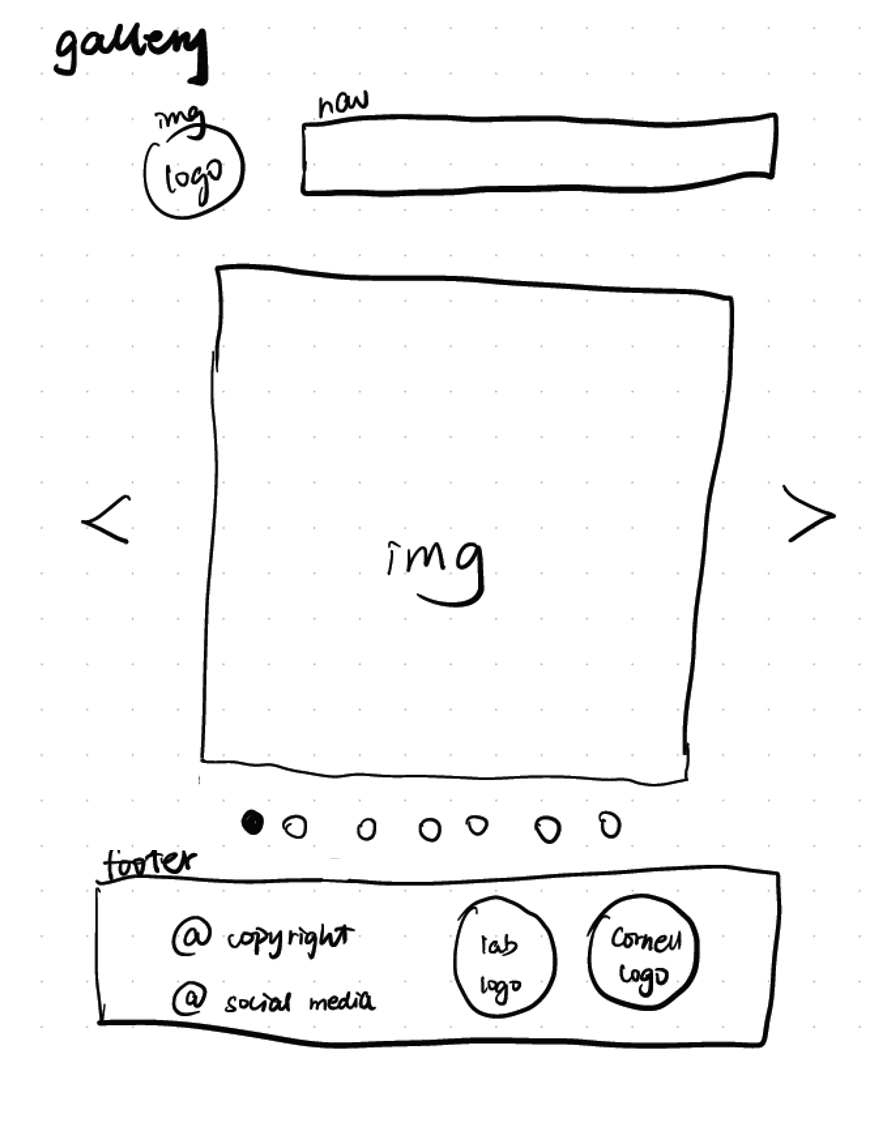 gallery
img
logo
nav
<
img
>
footer
@ copyright
@ social media
lab
logo
Cornell
logo